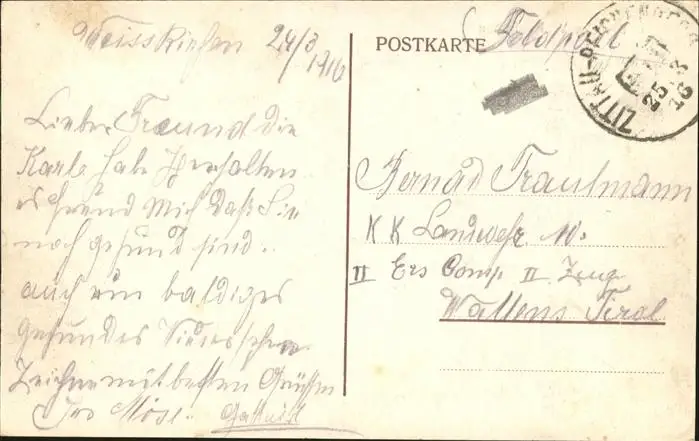 Weisskirchen 24/8
1916
Lieber Freund die
Karte habe Herhalten
es freud Mich daß Sie
noch gesund sind.
auch ein baldiges
gesundes Wiedersehen
Zeichne mit besten Grüßen
POSTKARTE
Feldpost
ZITTAU-REICHENBERG
25 8
16
Bernád Trautmann
KK Landwehr
II Ers Comp II Zug
Wattens Tirol